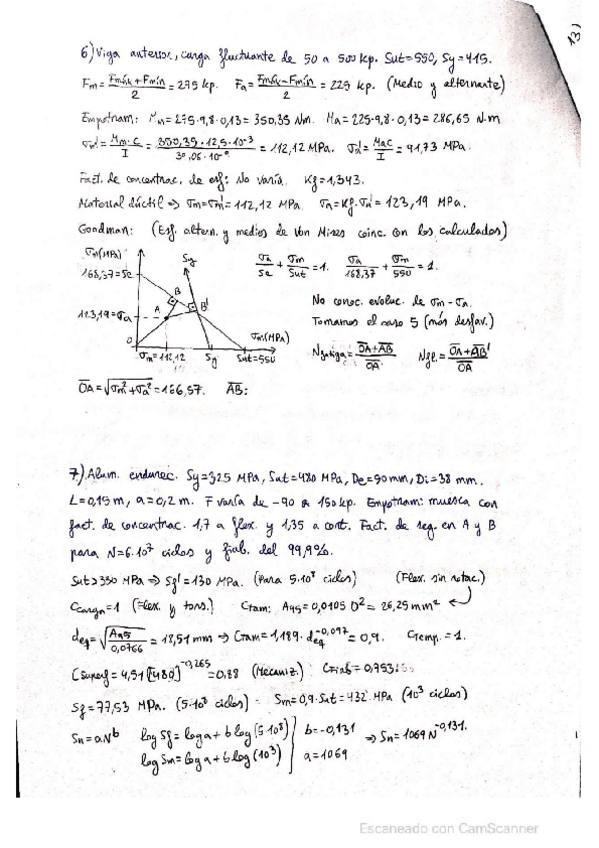 13)
6) Viga anterior, carga fluctuante de 50 a 500 kp. Sut=550, Sy=415.
Fm = (Fmáx+Fmín)/2 = 275 kp. Fa = (Fmáx-Fmín)/2 = 225 kp. (Medio y alternante)
Empotram: Mm = 275·9,8·0,13 = 350,35 Nm. Ma = 225·9,8·0,13 = 286,65 N·m
σm' = Mm·C/I = 350,35·12,5·10⁻³/30,06·10⁻⁹ = 112,12 MPa. σa' = MaC/I = 91,73 MPa.
Fact. de concentrac. de esf: No varía. Kf = 1,343.
Material dúctil ⇒ σm = σm' = 112,12 MPa. σa = Kf·σa' = 123,19 MPa.
Goodman: (Esf. altern. y medios de Von Mises coinc. con los calculados)
σa/Se + σm/Sut = 1. σa/168,37 + σm/550 = 1.
(MPa)
Sy
168,37=Se
B
B'
A
113,19=σa
O
σm=112,12
Sy
Sut=550
σm(MPa)
No conoc. evoluc. de σm-σa.
Tomamos el caso 5 (más desfav.)
Nfatiga = (OA+AB)/OA Nfl. = (OA+AB')/OA
OA = √(σm²+σa²) = 166,57. AB:
7) Alum. endurec. Sy=325 MPa, Sut=480 MPa, De=90mm, Di=38 mm.
L=0,15m, a=0,2m. F varía de -90 a 150kp. Empotram: muesca con
fact. de concentrac. 1,7 a flex. y 1,35 a cort. Fact. de seg. en A y B
para N=6·10⁷ ciclos y fiab. del 99,9%.
Sut>330 MPa ⇒ Sf' = 130 MPa. (Para 5·10⁸ ciclos) (Flex. sin rotac.)
Ccarga=1 (Flex. y tors.) Ctam: A95 = 0,0105 D² = 26,25 mm²
deq = √(A95/0,0766) = 18,51 mm ⇒ Ctam = 1,189·deq^-0,097 = 0,9. Ctemp. = 1.
Csuperf = 4,51[480]^-0,265 = 0,88 (Mecaniz.) Cfiab = 0,753
Sf = 77,53 MPa. (5·10⁸ ciclos) Sm = 0,9·Sut = 432 MPa (10³ ciclos)
Sn = a·N^b log Sf = log a + b log (5·10⁸) b = -0,131 ⇒ Sn = 1069 N^-0,131.
log Sm = log a + b log (10³) a = 1069
Escaneado con CamScanner